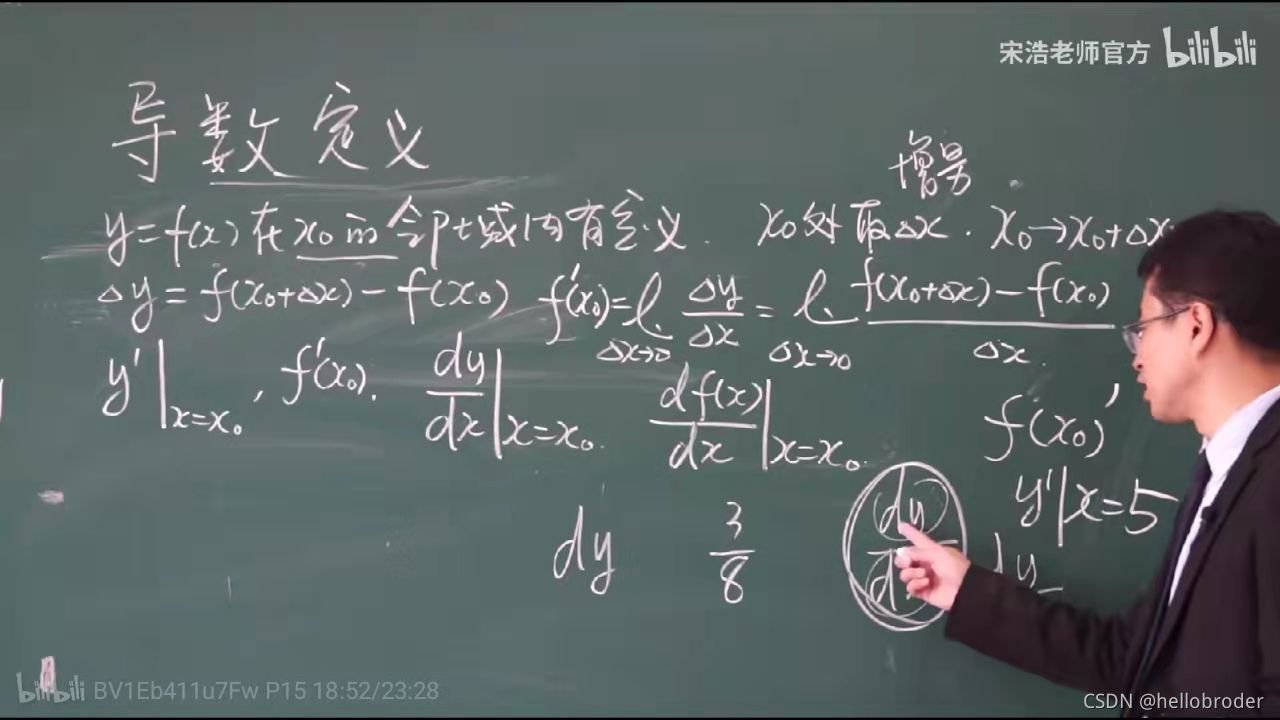 宋浩老师官方 bilibili
导数定义
增量
y=f(x)在x₀的邻域内有定义. x₀处取Δx. x₀→x₀+Δx
Δy=f(x₀+Δx)-f(x₀) f'(x₀)=l. Δx→0 Δy/Δx = l. Δx→0 (f(x₀+Δx)-f(x₀))/Δx.
y'|x=x₀, f'(x₀). dy/dx|x=x₀. df(x)/dx|x=x₀. f(x₀)'
y'|x=5
dy 3/8 dy dy
bilibili BV1Eb411u7Fw P15 18:52/23:28
CSDN @hellobroder